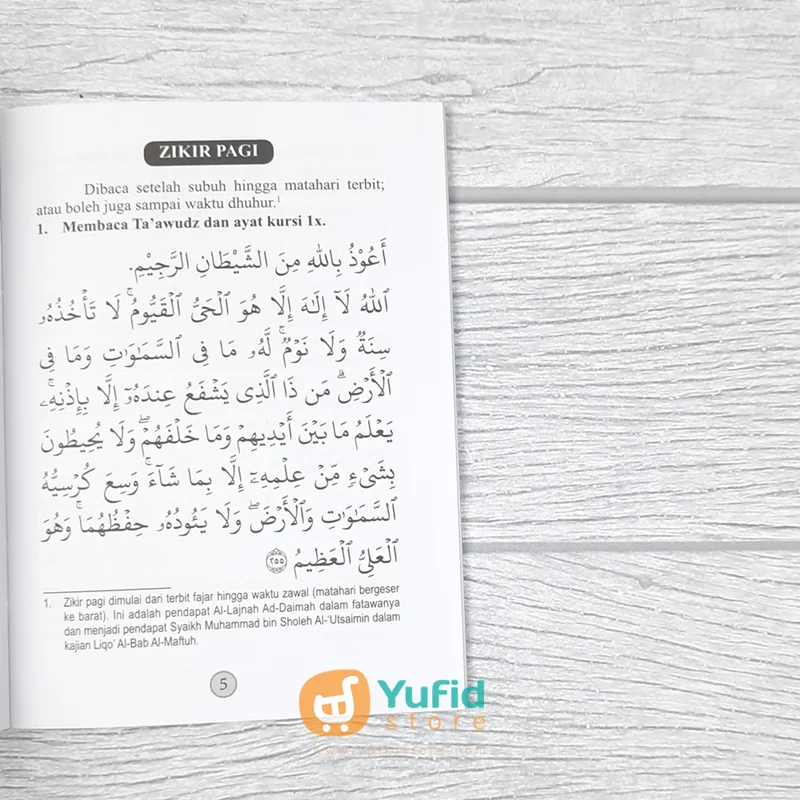 ZIKIR PAGI
Dibaca setelah subuh hingga matahari terbit;
atau boleh juga sampai waktu dhuhur.¹
1. Membaca Ta'awudz dan ayat kursi 1x.
أَعُوْذُ بِاللهِ مِنَ الشَّيْطَانِ الرَّجِيْمِ.
ٱللَّهُ لَآ إِلَٰهَ إِلَّا هُوَ ٱلۡحَيُّ ٱلۡقَيُّومُۚ لَا تَأۡخُذُهُۥ
سِنَةٞ وَلَا نَوۡمٞۚ لَّهُۥ مَا فِي ٱلسَّمَٰوَٰتِ وَمَا فِي
ٱلۡأَرۡضِۗ مَن ذَا ٱلَّذِي يَشۡفَعُ عِندَهُۥٓ إِلَّا بِإِذۡنِهِۦۚ
يَعۡلَمُ مَا بَيۡنَ أَيۡدِيهِمۡ وَمَا خَلۡفَهُمۡۖ وَلَا يُحِيطُونَ
بِشَيۡءٖ مِّنۡ عِلۡمِهِۦٓ إِلَّا بِمَا شَآءَۚ وَسِعَ كُرۡسِيُّهُ
ٱلسَّمَٰوَٰتِ وَٱلۡأَرۡضَۖ وَلَا يَـُٔودُهُۥ حِفۡظُهُمَاۚ وَهُوَ
ٱلۡعَلِيُّ ٱلۡعَظِيمُ ٢٥٥
1. Zikir pagi dimulai dari terbit fajar hingga waktu zawal (matahari bergeser
ke barat). Ini adalah pendapat Al-Lajnah Ad-Daimah dalam fatawanya
dan menjadi pendapat Syaikh Muhammad bin Sholeh Al-'Utsaimin dalam
kajian Liqo' Al-Bab Al-Maftuh.
5
Yufid
store
www.yufidstore.com